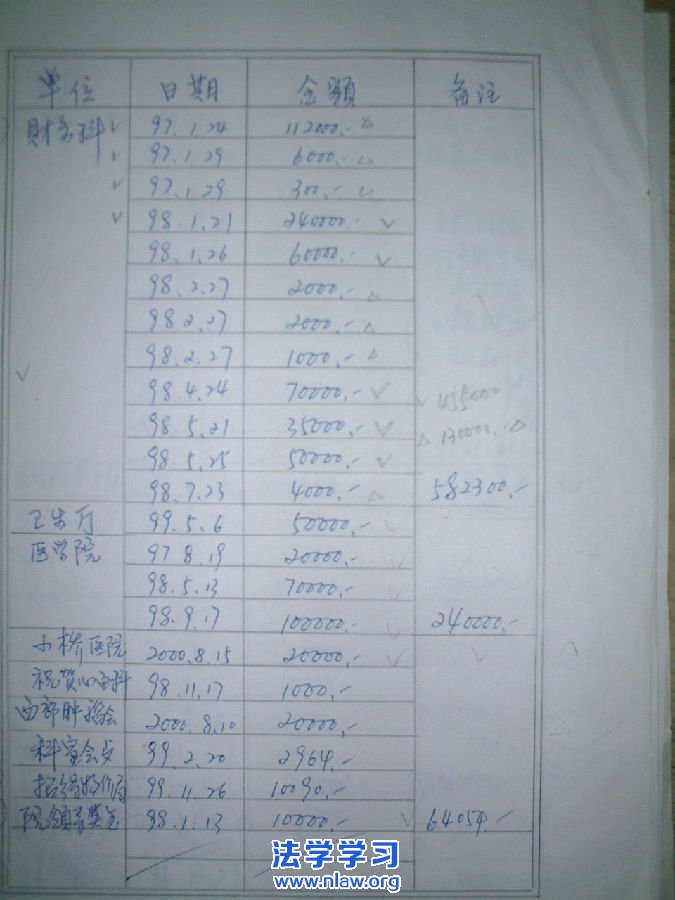 单位 日期 金额 备注
财务科 √ 97.1.24 112000.- △
√ 97.1.29 6000.- △
√ 97.1.29 300.- △
√ 98.1.21 240000.- √
98.1.26 60000.- √
98.2.27 2000.- △
98.2.27 2000.- △
98.2.27 1000.- △
√ 98.4.24 70000.- √ √ 455000
98.5.21 35000.- √ △ 130000.- △
98.5.25 50000.- √
98.7.23 4000.- △ 582300.-
卫生厅 99.5.6 50000.- √
医学院 97.8.19 20000.- √
98.5.13 70000.- √
98.9.17 100000.- √ 240000.-
小桥医院 2000.8.15 20000.- √ √
祝贺心血科 98.11.17 1000.-
西部肿瘤会 2000.8.10 20000.-
科室会 99.2.20 2964.-
99.11.26 10090.-
院领导奖金 98.1.13 10000.- √ 64054.-
法学学习
www.nlaw.org